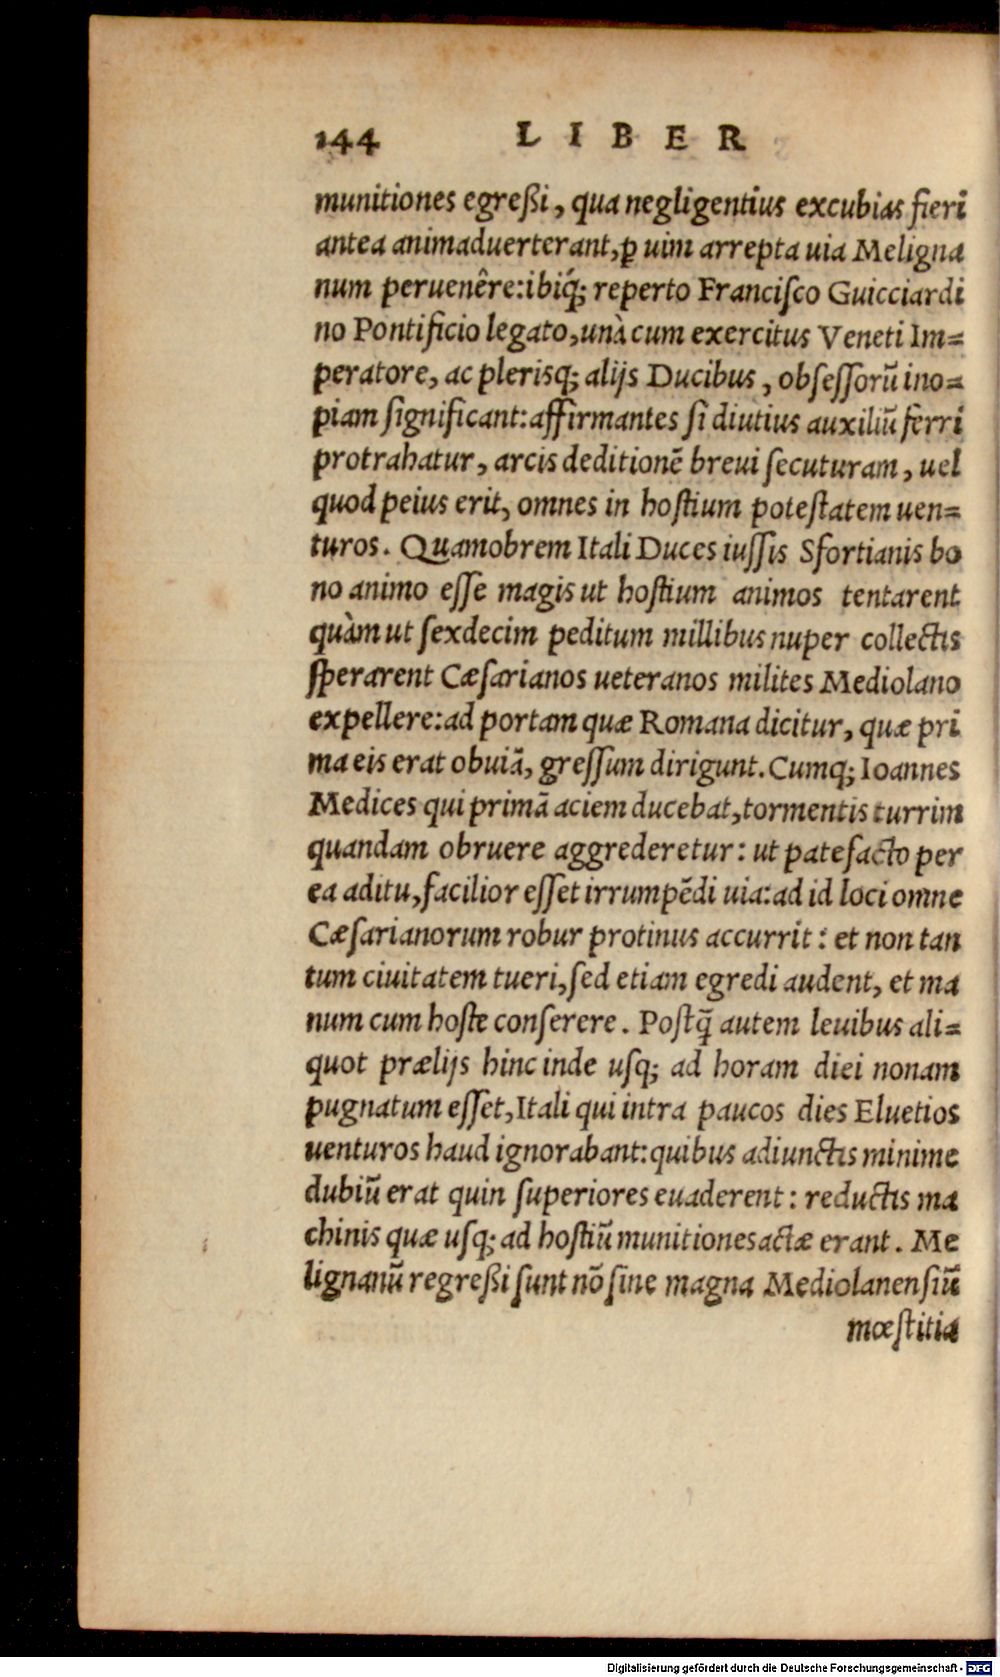 144 LIBER
munitiones egreßi, qua negligentius excubias fieri
antea animaduerterant, ꝑ uim arrepta uia Meligna
num peruenêre: ibiq́; reperto Franciſco Guicciardi
no Pontificio legato, unà cum exercitus Veneti Im=
peratore, ac plerisq; alijs Ducibus, obſeſſorū ino=
piam ſignificant: affirmantes ſi diutius auxiliū ferri
protrahatur, arcis deditionē breui ſecuturam, uel
quod peius erit, omnes in hoſtium poteſtatem uen=
turos. Quamobrem Itali Duces iuſſis Sfortianis bo
no animo eſſe magis ut hoſtium animos tentarent
quàm ut ſexdecim peditum millibus nuper collectis
ſperarent Cæſarianos ueteranos milites Mediolano
expellere: ad portam quæ Romana dicitur, quæ pri
ma eis erat obuiā, greſſum dirigunt. Cumq; Ioannes
Medices qui primā aciem ducebat, tormentis turrim
quandam obruere aggrederetur: ut patefacto per
ea aditu, facilior eſſet irrumpēdi uia: ad id loci omne
Cæſarianorum robur protinus accurrit: et non tan
tum ciuitatem tueri, ſed etiam egredi audent, et ma
num cum hoſte conſerere. Poſtq̄ autem leuibus ali=
quot prælijs hinc inde uſq; ad horam diei nonam
pugnatum eſſet, Itali qui intra paucos dies Eluetios
uenturos haud ignorabant: quibus adiunctis minime
dubiū erat quin ſuperiores euaderent: reductis ma
chinis quæ uſq; ad hoſtiū munitiones actæ erant. Me
lignanū regreßi ſunt nō ſine magna Mediolanenſiū
mœſtitia
Digitalisierung gefördert durch die Deutsche Forschungsgemeinschaft - DFG